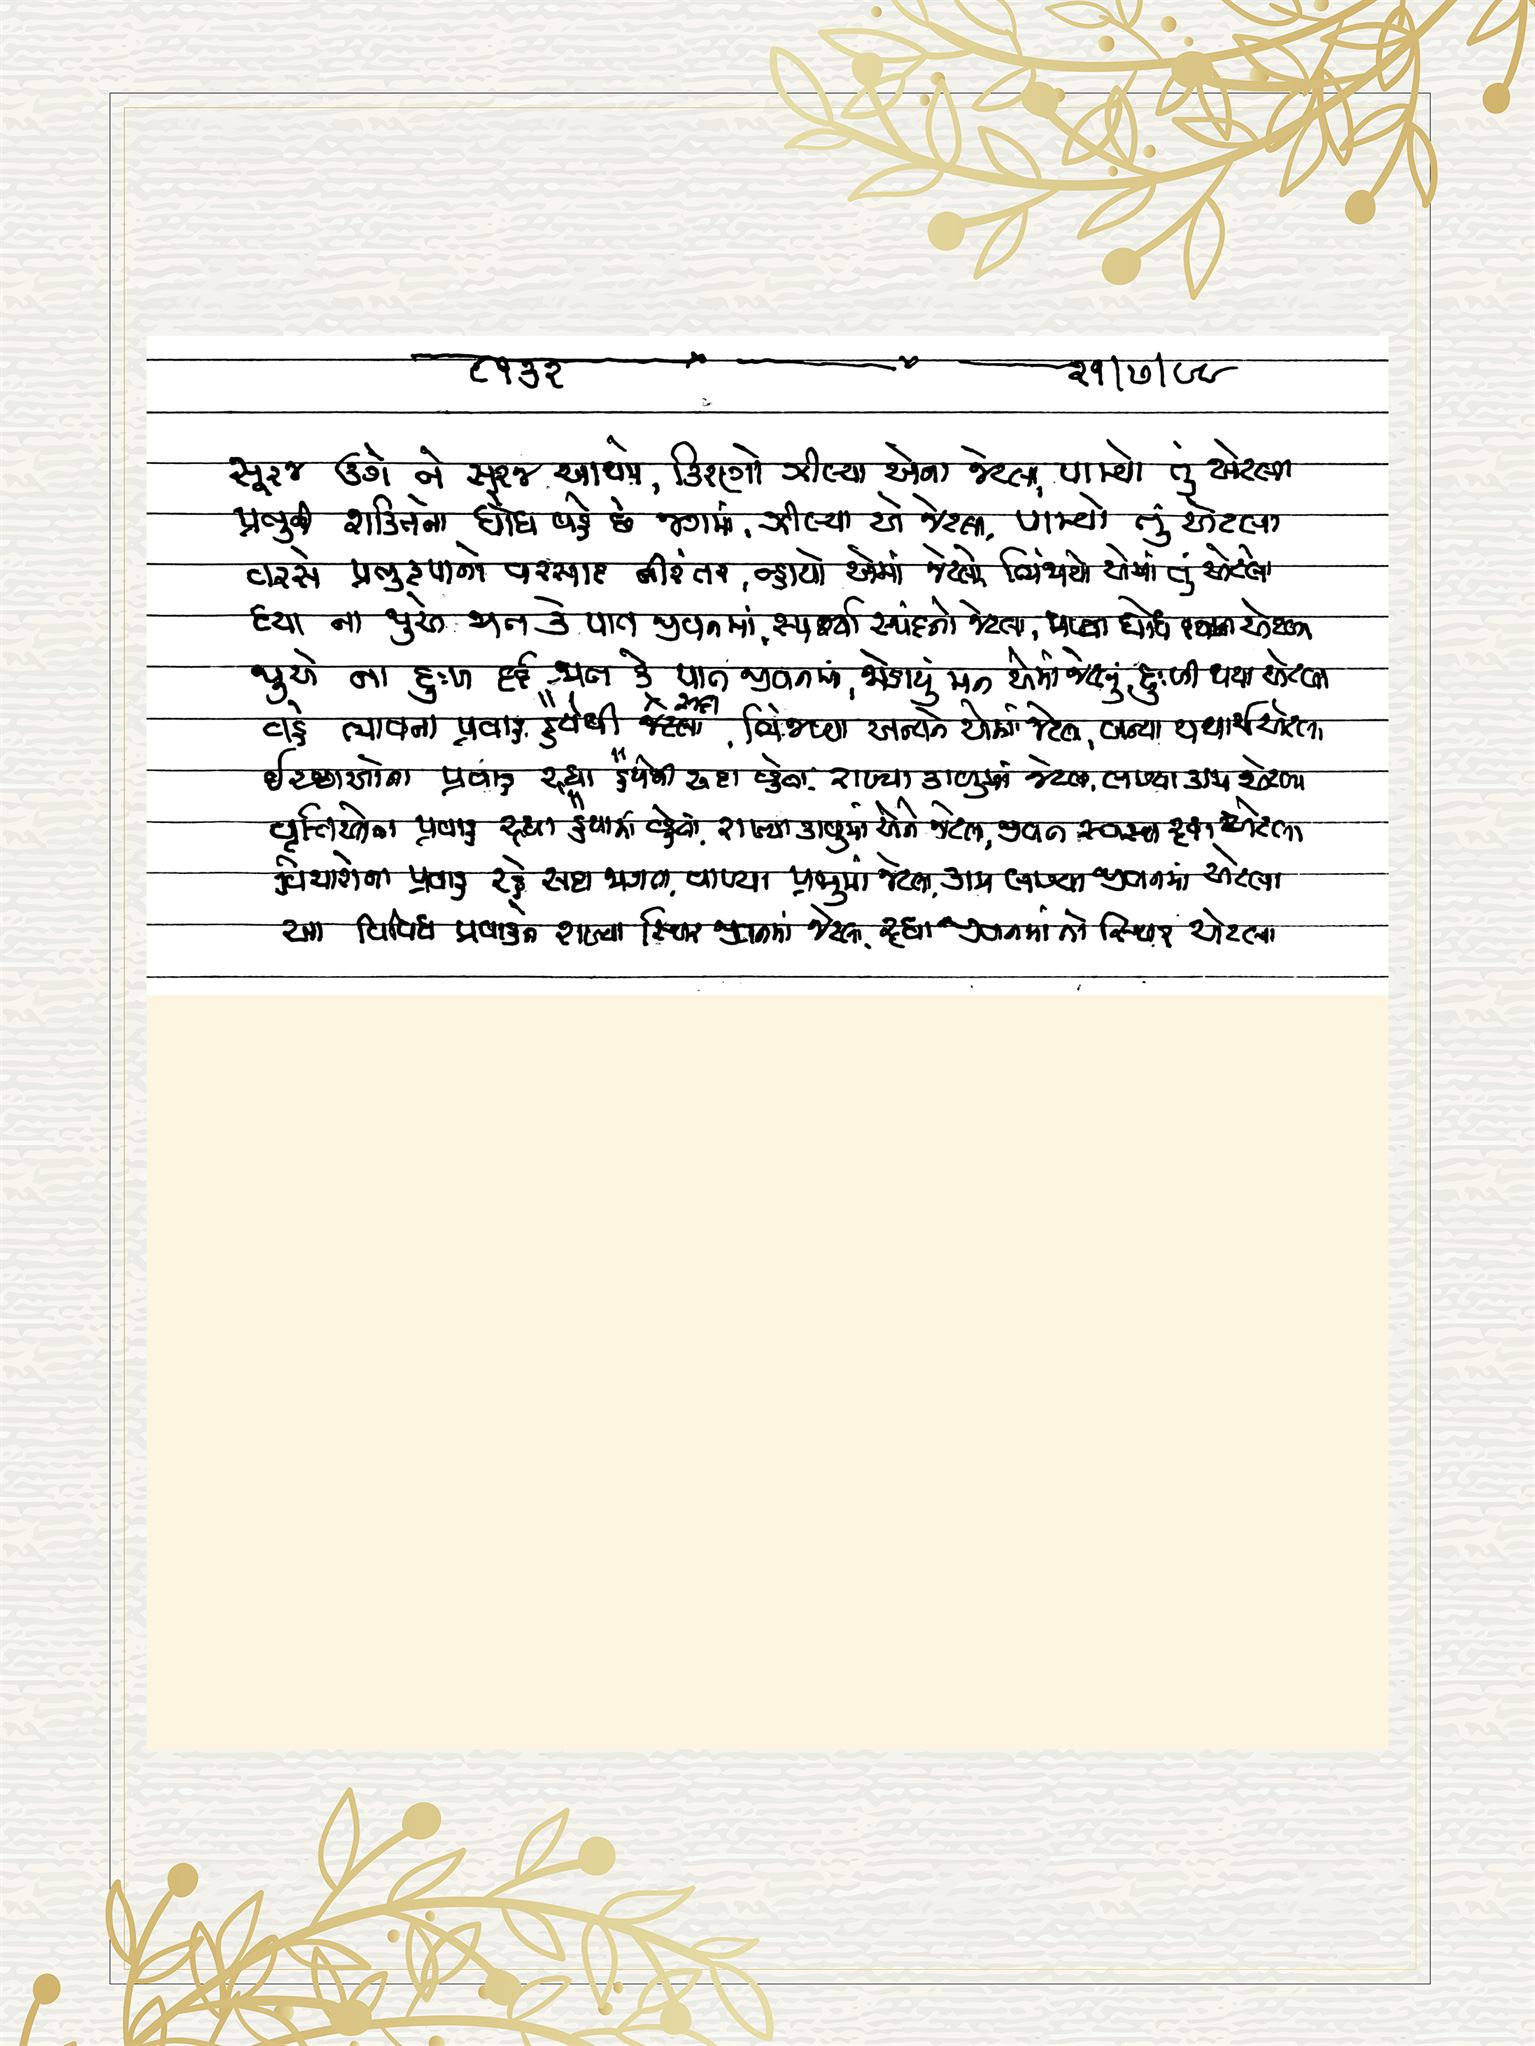 ૮૧૩૨ ૨૧/૭/૯૯
સૂરજ ઉગે ને સૂરજ આથમે, કિરણો ઝીલ્યા એના જેટલા, પામ્યો તું એટલા
પ્રભુની શક્તિના ધોધ વહે છે જગમાં, ઝીલ્યા એ જેટલા, પામ્યો તું એટલા
વરસે પ્રભુકૃપાનો વરસાદ નીરંતર, ન્હાયો એમાં જેટલો, ભિંજાયો એમાં તું એટલો
દયા ના જુએ જાત કે પાત જીવનમાં, સ્પર્શ્યા સ્પંદનો જેટલા, ધોધ એટલા
જુએ ના દુઃખ દર્દ જાત કે પાત જીવનમાં, જોડાયું મન એમાં જેટલું, દુઃખી થયા એટલા
વહે ભાવના પ્રવાહ હૈયેથી જેટલા, ભિંજાયા અન્યને એમાં જેટલા, બન્યા યથાર્થ એટલા
ઈચ્છાઓના પ્રવાહ રહ્યા હૈયેથી સદા વહેતા, રાખ્યા કાબુમાં જેટલા, લાગ્યા કામ એટલા
વૃત્તિઓના પ્રવાહ રહ્યા હૈયામાં વહેતા, રાખ્યા કાબુમાં એને જેટલા, જીવન સ્વસ્થ રહ્યા એટલા
વિચારોના પ્રવાહ રહે સદા ભાગતા, વાળ્યા પ્રભુમાં જેટલા, કામ લાગ્યા જીવનમાં એટલા
આ વિવિધ પ્રવાહોને રાખ્યા સ્થિર જીવનમાં જેટલા, રહ્યા જીવનમાં તો સ્થિર એટલા